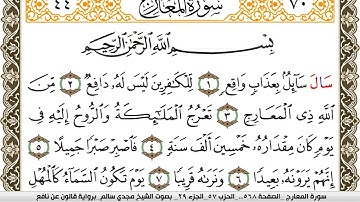 ٤٤ سُورَةُ الْمَعَارِجِ ٧٠
بِسْمِ اللَّهِ الرَّحْمَٰنِ الرَّحِيمِ
سَالَ سَآئِلٌۢ بِعَذَابٍ وَاقِعٍ ١ لِّلْكَٰفِرِينَ لَيْسَ لَهُۥ دَافِعٌ ٢ مِّنَ
اَللَّهِ ذِى الْمَعَارِجِ ٣ تَعْرُجُ الْمَلَٰٓئِكَةُ وَالرُّوحُ إِلَيْهِ فِى
يَوْمٍ كَانَ مِقْدَارُهُۥ خَمْسِينَ أَلْفَ سَنَةٍ ٤ فَاصْبِرْ صَبْرًا جَمِيلًا ٥
إِنَّهُمْ يَرَوْنَهُۥ بَعِيدًا ٦ وَنَرَىٰهُ قَرِيبًا ٧ يَوْمَ تَكُونُ السَّمَآءُ كَالْمُهْلِ
سورة المعارج - الصفحة ٥٦٨ - الحزب ٥٧ - الجزء ٢٩ - بصوت الشيخ مجدي سالم - برواية قالون عن نافع